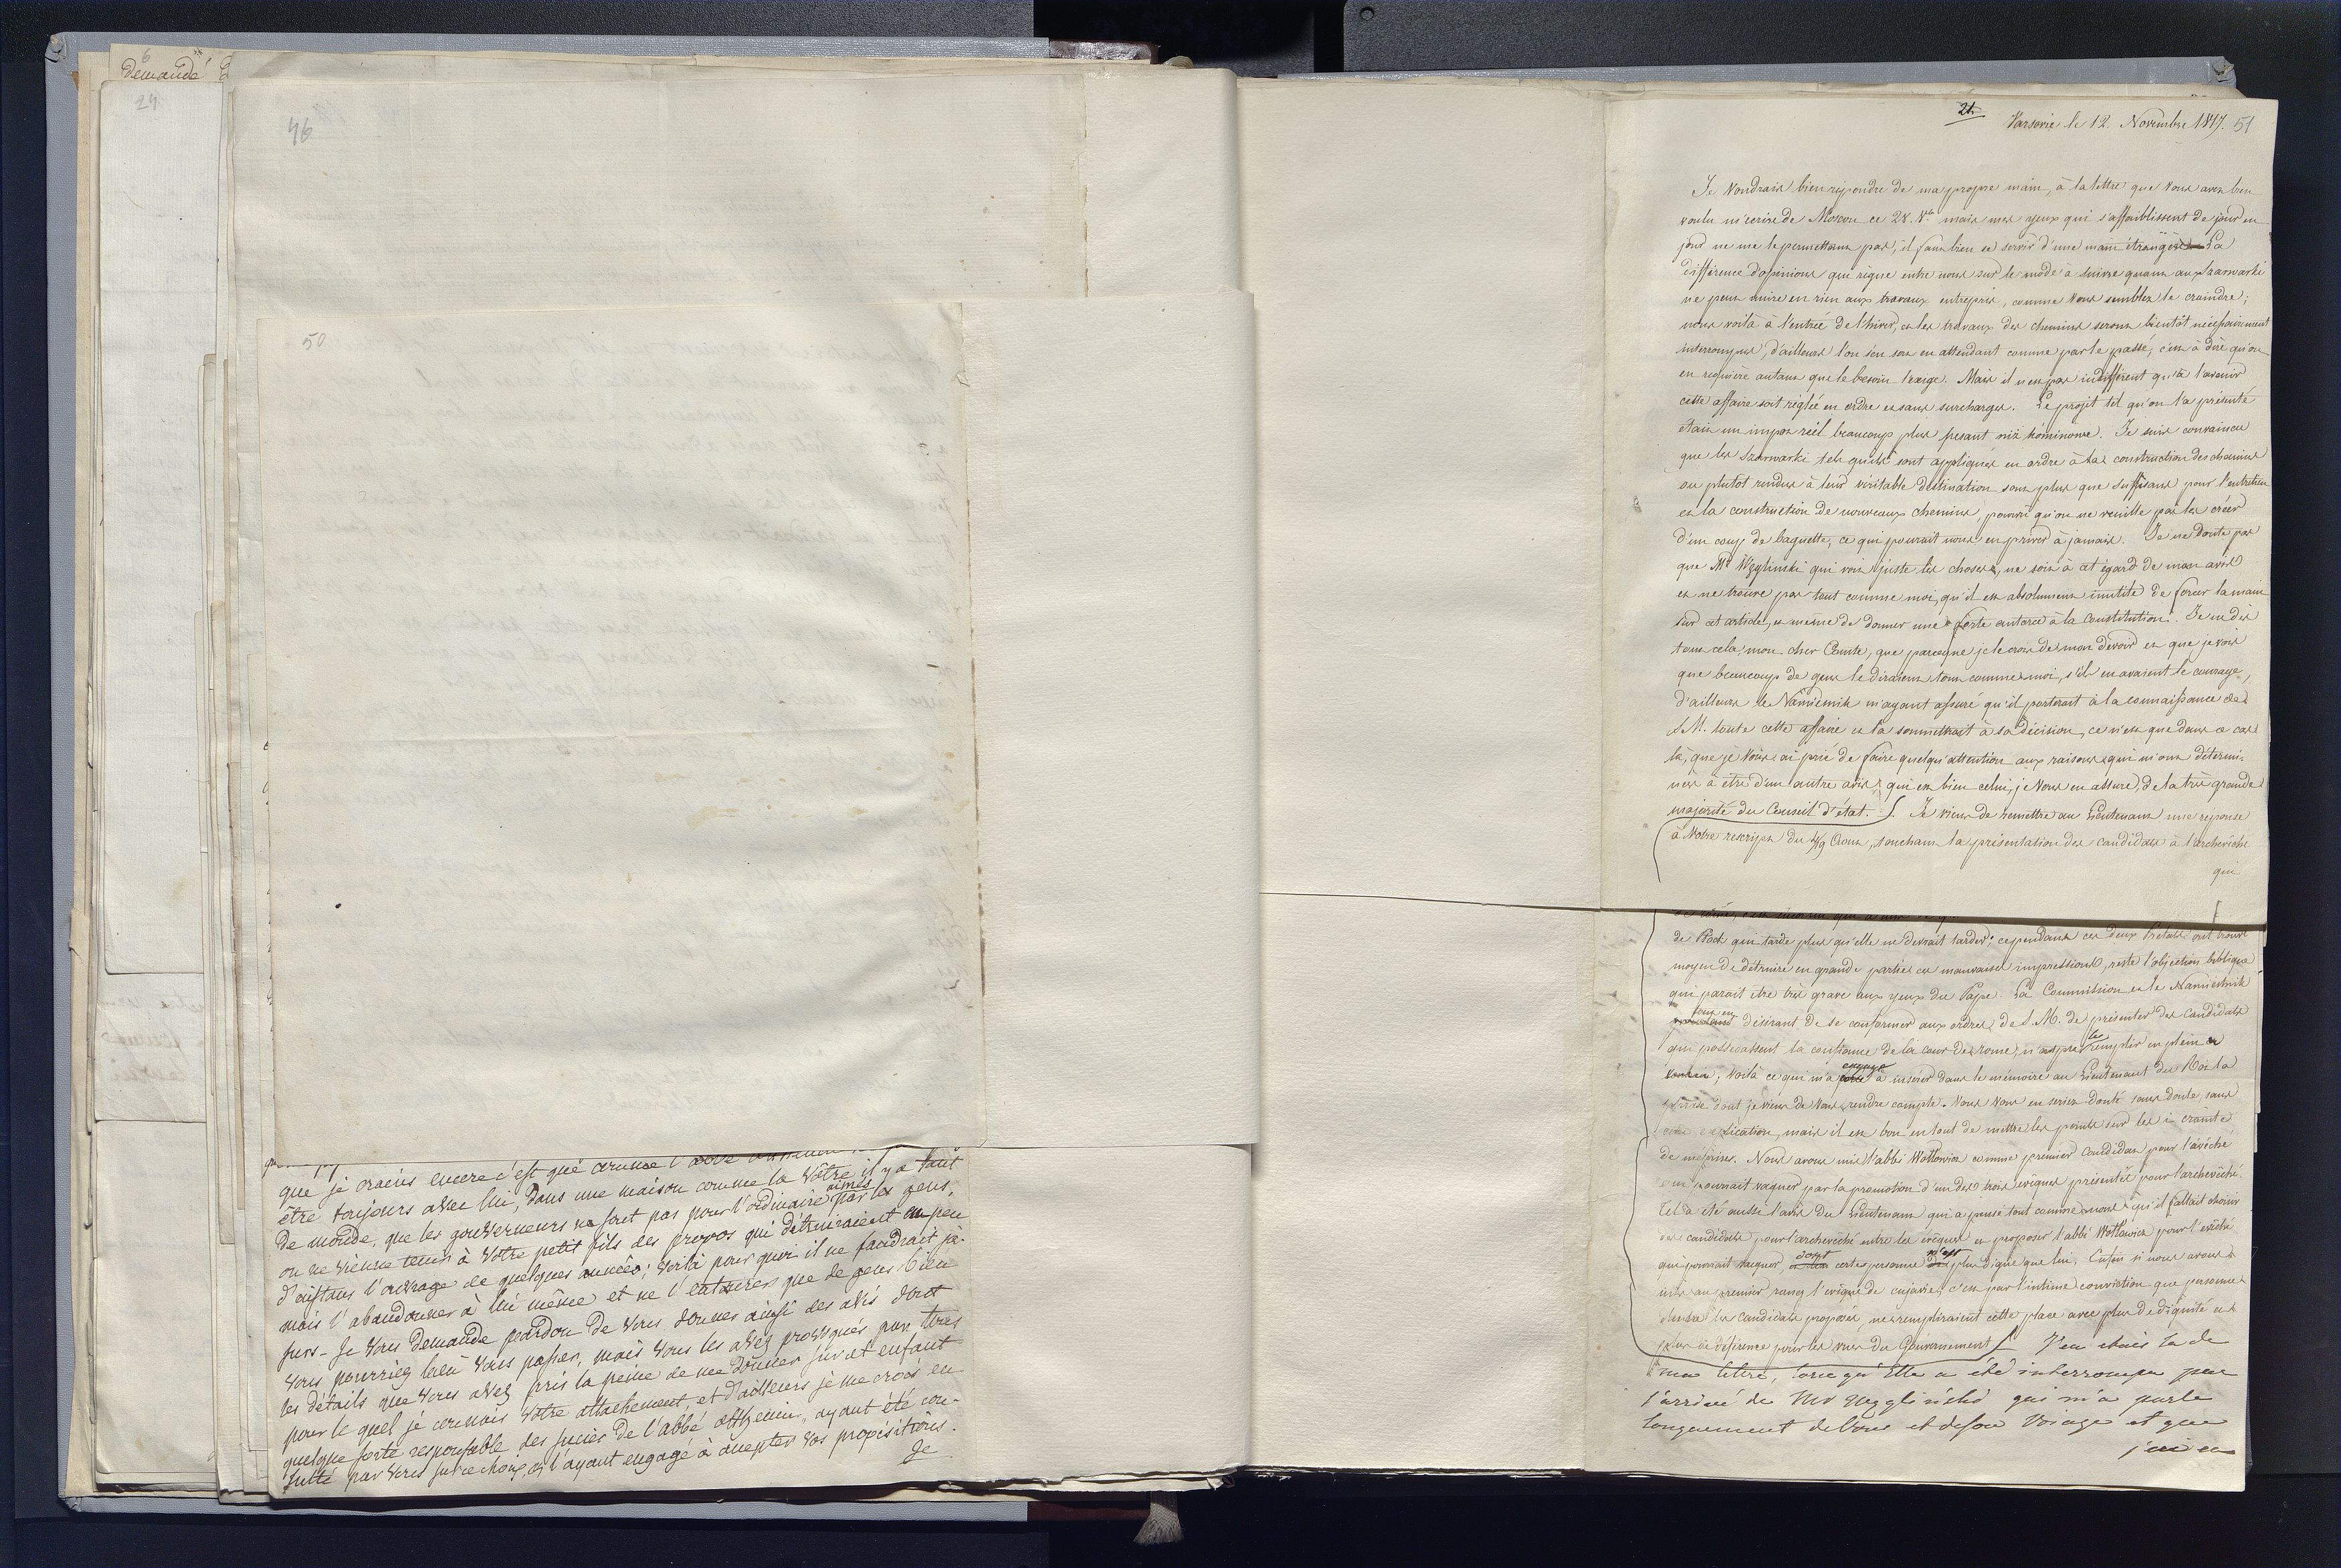 demandé
6
24
46
50
que je crains encore c'est que comme l'abbé
être toujours avec lui, dans une maison comme la Vôtre il y a tant
de monde, que les gouverneurs ne font pas pour l'ordinaire aimés par les gens,
on ne vienne tenir à Votre petit fils des propos qui détruiraient en peu
d'instans l'ouvrage de quelques années; voilà pourquoi il ne faudrait ja-
mais l'abandonner à lui même et ne l'entourer que de gens bien
surs. Je Vous demande pardon de Vous donner ainsi des avis dont
Vous pourriez bien Vous passer, mais Vous les avez provoqués par tous
les détails que Vous avez pris la peine de me donner sur cet enfant
pour le quel je connais Votre attachement, et d'ailleurs je me crois en
quelque sorte responsable des succès de l'abbé ayant été con-
sulté par Vous sur ce choix, et l'ayant engagé à accepter Vos propositions.
Je
21. Varsovie le 12. Novembre 1817. 51
Je Voudrais bien répondre de ma propre main, à la lettre que Vous avez bien
voulu m'écrire de Moscou ce 28. 8bre mais mes yeux qui s'affaiblissent de jour en
jour ne me le permettant pas, il faut bien se servir d'une main étrangère. La
différence d'opinions qui règne entre nous sur le mode à suivre quant aux Szarwarki
ne peut nuire en rien aux travaux entrepris, comme Vous semblez le craindre;
nous voilà à l'entrée de l'hiver, et les travaux des chemins seront bientôt nécessairement
interrompus, d'ailleurs l'on s'en sert en attendant comme par le passé, c'est à dire qu'on
en requière autant que le besoin l'exige. Mais il n'est pas indifférent qu'à l'avenir
cette affaire soit réglée en ordre et sans surcharges. Le projet tel qu'on l'a présenté
était un impôt réel beaucoup plus pesant niż kominowe. Je suis convaincu
que les Szarwarki tels qu'ils sont appliqués en ordre à la construction des chemins
ou plutôt rendus à leur véritable destination sont plus que suffisans pour l'entretien
et la construction de nouveaux chemins, pourvu qu'on ne veuille pas les créer
d'un coup de baguette, ce qui pourrait nous en priver à jamais. Je ne doute pas
que Mr Wyzglinski qui voit juste les choses, ne soit à cet égard de mon avis
et ne trouve pas tout comme moi, qu'il est absolument inutile de forcer la main
sur cet article, et même de donner une forte entorse à la Constitution. Je ne dis
tout cela, mon cher Comte, que parceque je le crois de mon devoir et que je vois
que beaucoup de gens le diraient tout comme moi, s'ils en avaient le courage,
d'ailleurs le Namiestnik m'ayant assuré qu'il porterait à la connaissance de
S. M. toute cette affaire et la soumettrait à sa décision, ce n'est que dans ce cas
là, que je Vous ai prié de faire quelqu'attention aux raisons qui m'ont détermi-
nés à être d'un autre avis, qui est bien celui, je Vous en assure, de la très grande
majorité du Conseil d'état. Je viens de remettre au Lieutenant une réponse
à Votre rescript du 7/19 Aout, touchant la présentation des candidats à l'archevêché
qui
de Płock qui tarde plus qu'elle ne devrait tarder; cependant ces deux Prélats ont trouvé
moyen de détruire en grande partie ces mauvaises impressions, reste l'objection biblique
qui parait être très grave aux yeux du Pape. La Commission et le Namiestnik
tout en désirant de se conformer aux ordres de S. M. de présenter des Candidats
qui possédassent la confiance de la cour de rome, n'ont pas pu remplir en plein
; voilà ce qui m'a engagé à insérer dans le mémoire au Lieutenant du Roi la
dont je viens de Vous rendre compte. Vous Vous en seriez douté sans doute, sans
explication, mais il est bon en tout de mettre les points sur les i crainte
de méprises. Nous avons mis l'abbé Wołłowicz comme premier Candidat pour l'évêché
qui pourrait vaquer par la promotion d'un des trois évêques présentés pour l'archevêché.
Tel a été aussi l'avis du Lieutenant qui a pensé tout comme nous qu'il fallait choisir
des candidats pour l'archevêché entre les évêques et proposer l'abbé Wołłowicz pour l'évêché
qui pourrait vaquer, dont certes personne n'est plus digne que lui, Enfin si nous avons
mis au premier rang l'évêque de cujavie, c'est par l'intime conviction que personne
d'entre les candidats proposés, ne rempliraient cette place avec plus de dignité et
plus de déférence pour les vues du Gouvernement. J'en étais là de
ma lettre, lorsqu'Elle a été interrompue par
l'arrivée de Mr Wyzglinski qui m'a parlé
longuement de Vous et de son Voyage et que
j'ai eu